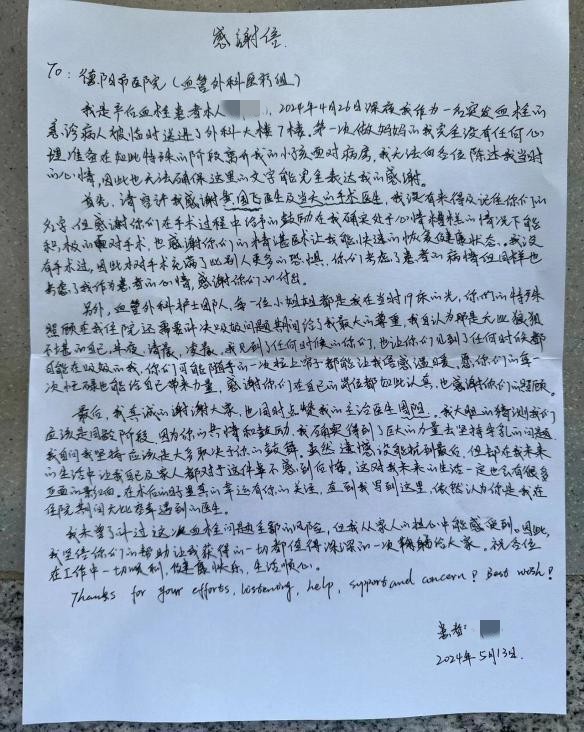 感谢信.
To: 德阳市医院(血管外科医疗组)
我是平台血栓患者本人 ,2024年4月26日深夜我作为一名突发血栓的
急诊病人被临时送进了外科大楼7楼,第一次做妈妈的我完全没有任何心
理准备在如此特殊的阶段离开我的小孩面对病房,我无法向各位陈述我当时
的心情,因此也无法确保这里的文字能完全表达我的感谢。
首先,请容许我感谢黄国飞医生及当天的手术医生,我没有来得及记住你们的
名字,但感谢你们在手术过程中给予的鼓励在我确实处于心情糟糕的情况下能
积极的面对手术,也感谢你们的精湛医术让我能快速的恢复健康状态。我没
有手术过,因此对手术充满了比别人更多的恐惧,你们考虑了患者的病情但同样也
考虑了我作为患者的心情,感谢你们的付出。
另外,血管外科护士团队,每一位小姐姐都是我在当时17床的光,你们的特殊
照顾在我住院还需要解决吸奶问题期间给了我最大的尊重,我自认为那是无比狼狈
不堪的自己,半夜,清晨,凌晨,我见到了任何时候的你们,也让你们见到了任何时候都
可能在吸奶的我,你们可能随手的一次拉上帘子都能让我倍感温暖,愿你们的每一
次忙碌也能给自己带来力量,感谢你们在自己的岗位都如此认真,也感谢你们的照顾。
最后,我真诚的谢谢大家,也同时点赞我的主治医生周阳,我大胆的猜测我们
应该是同龄阶段,因为你的共情和鼓励,我确实得到了巨大的力量去坚持母乳的问题
我自问我坚持应该是大多取决于你的鼓舞。虽然遗憾没能抗到最后,但都在我未来
的生活中让我自己及家人都对于这件事不感到后悔,这对我未来的生活一定也会有很多
正面的影响。在术后的时里真的幸运有你的关注,直到我写到这里,依然认为你是我在
住院期间无比荣幸遇到的医生。
我未曾了解过这次血栓问题全部的风险,但我从家人的担心中能感受到。因此,
我坚信你们的帮助让我获得的一切都值得深深的一次鞠躬给大家。祝各位
在工作中一切顺利,健康快乐,生活顺心。
Thanks for your efforts, listening, help, support and concern! Best wish!
患者:
2024年5月13日.